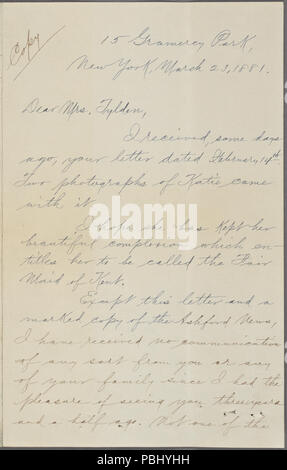 Copy
15 Gramercy Park,
New York, March 23, 1881.
Dear Mrs. Tylden,
I received, some days
ago, your letter dated February 14th
Two photographs of Katie came
with it
I hope she has kept her
beautiful complexion which en-
titles her to be called the Fair
Maid of Kent.
Except this letter and a
marked copy of the Ashford News,
I have received no communication
of any sort from you or any
of your family since I had the
pleasure of seeing you three years
and a half ago. Not one of the
alamy
PBHYHH